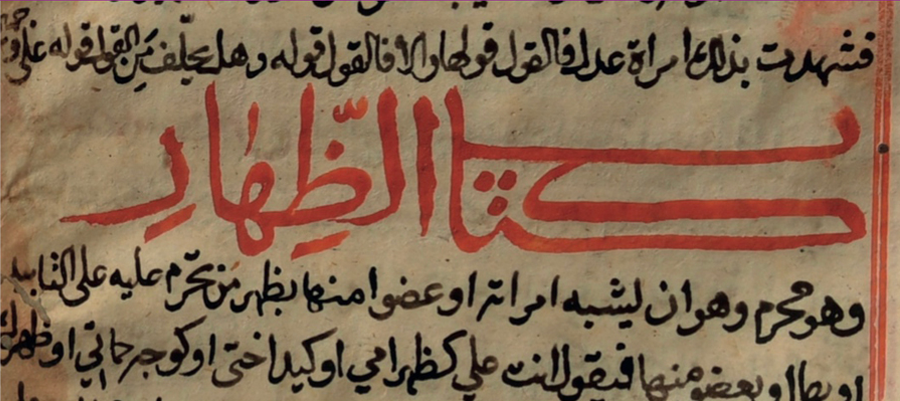 فشهدت بذلك امراة عدل فالقول قولها والا فالقول قوله وهل يحلف من القول قوله على
كتاب الظِّهارِ
وهو محرم وهو ان يشبه امراته او عضوا منها بظهر من تحرم عليه على التابيد
او بها او بعضو منها فيقول انت علي كظهر امي او كيد اختي او كوجه حماتي او ظهرك